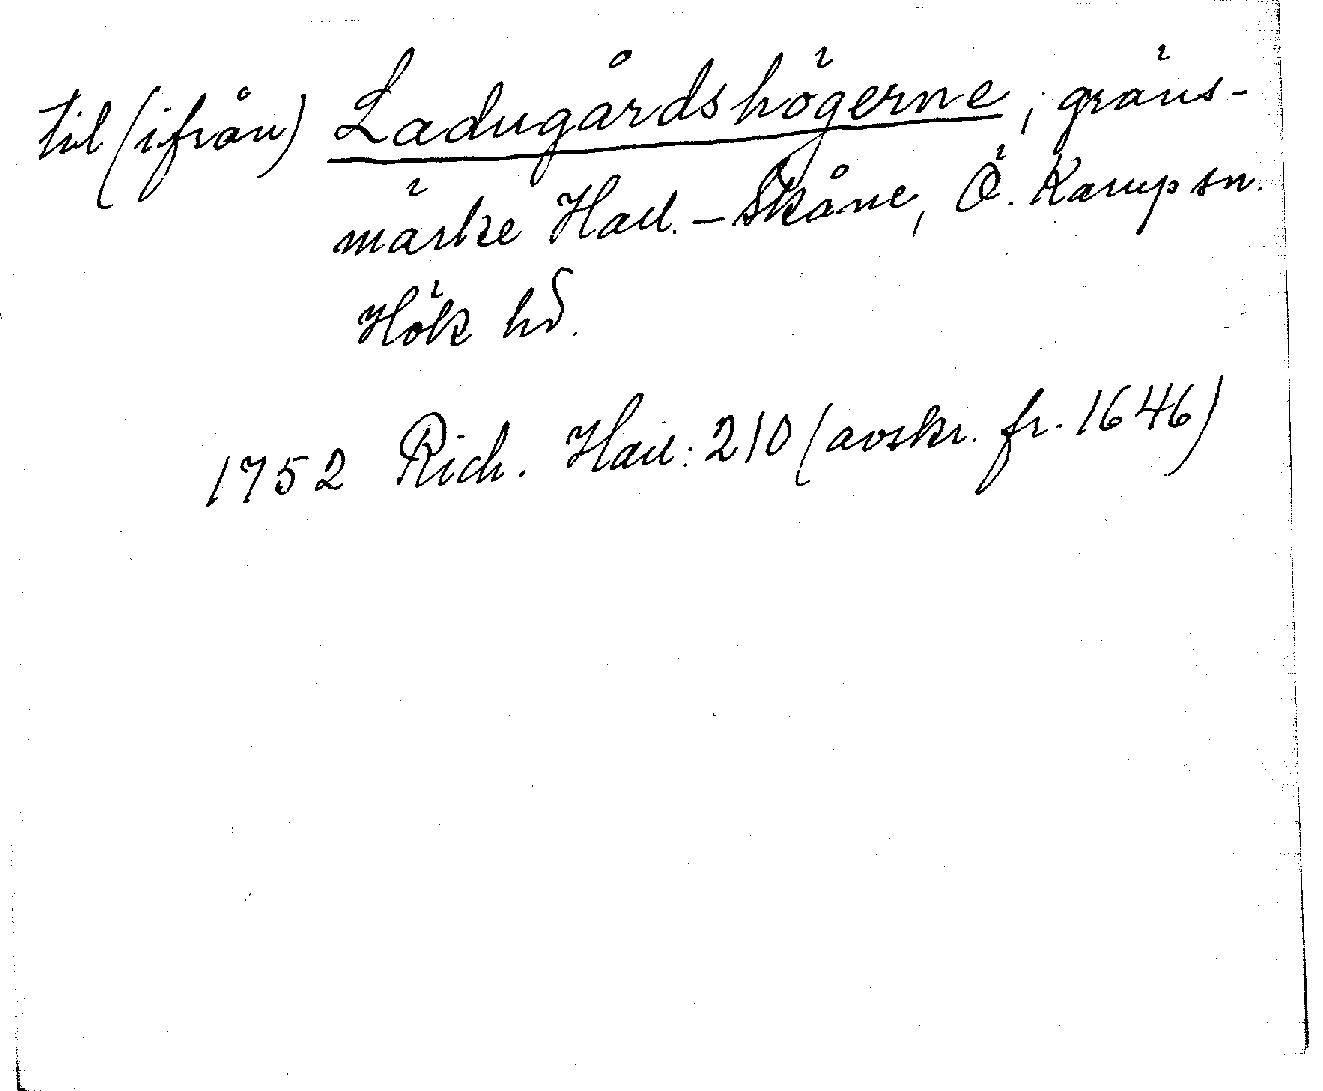 til (ifrån) Ladugårdshögerne, gräns-
märke Hall.-Skåne, Ö. Karup sn.
Hök hd.
1752 Rich. Hall: 210 (avskr. fr. 1646)